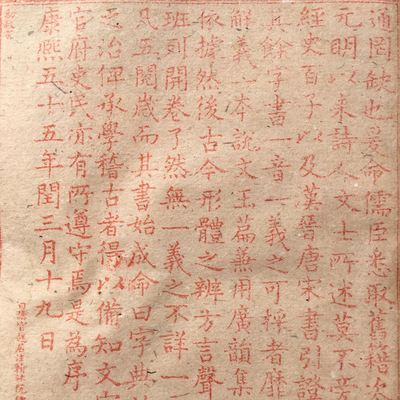 通罔缺也爰命儒臣悉取舊籍次
元明以來詩人文士所述莫不旁
經史百子以及漢晉唐宋書引證
其餘字書一音一義之可採者靡
解義一本說文玉篇兼用廣韻集
依據然後古今形體之辨方言聲
班列開卷了然無一義之不詳一
凡五閱歲而其書始成命曰字典
之治俾承學稽古者得以備知文字
官府吏民亦有所遵守焉是為序
康熙五十五年閏三月十九日
日講官起居注翰林院